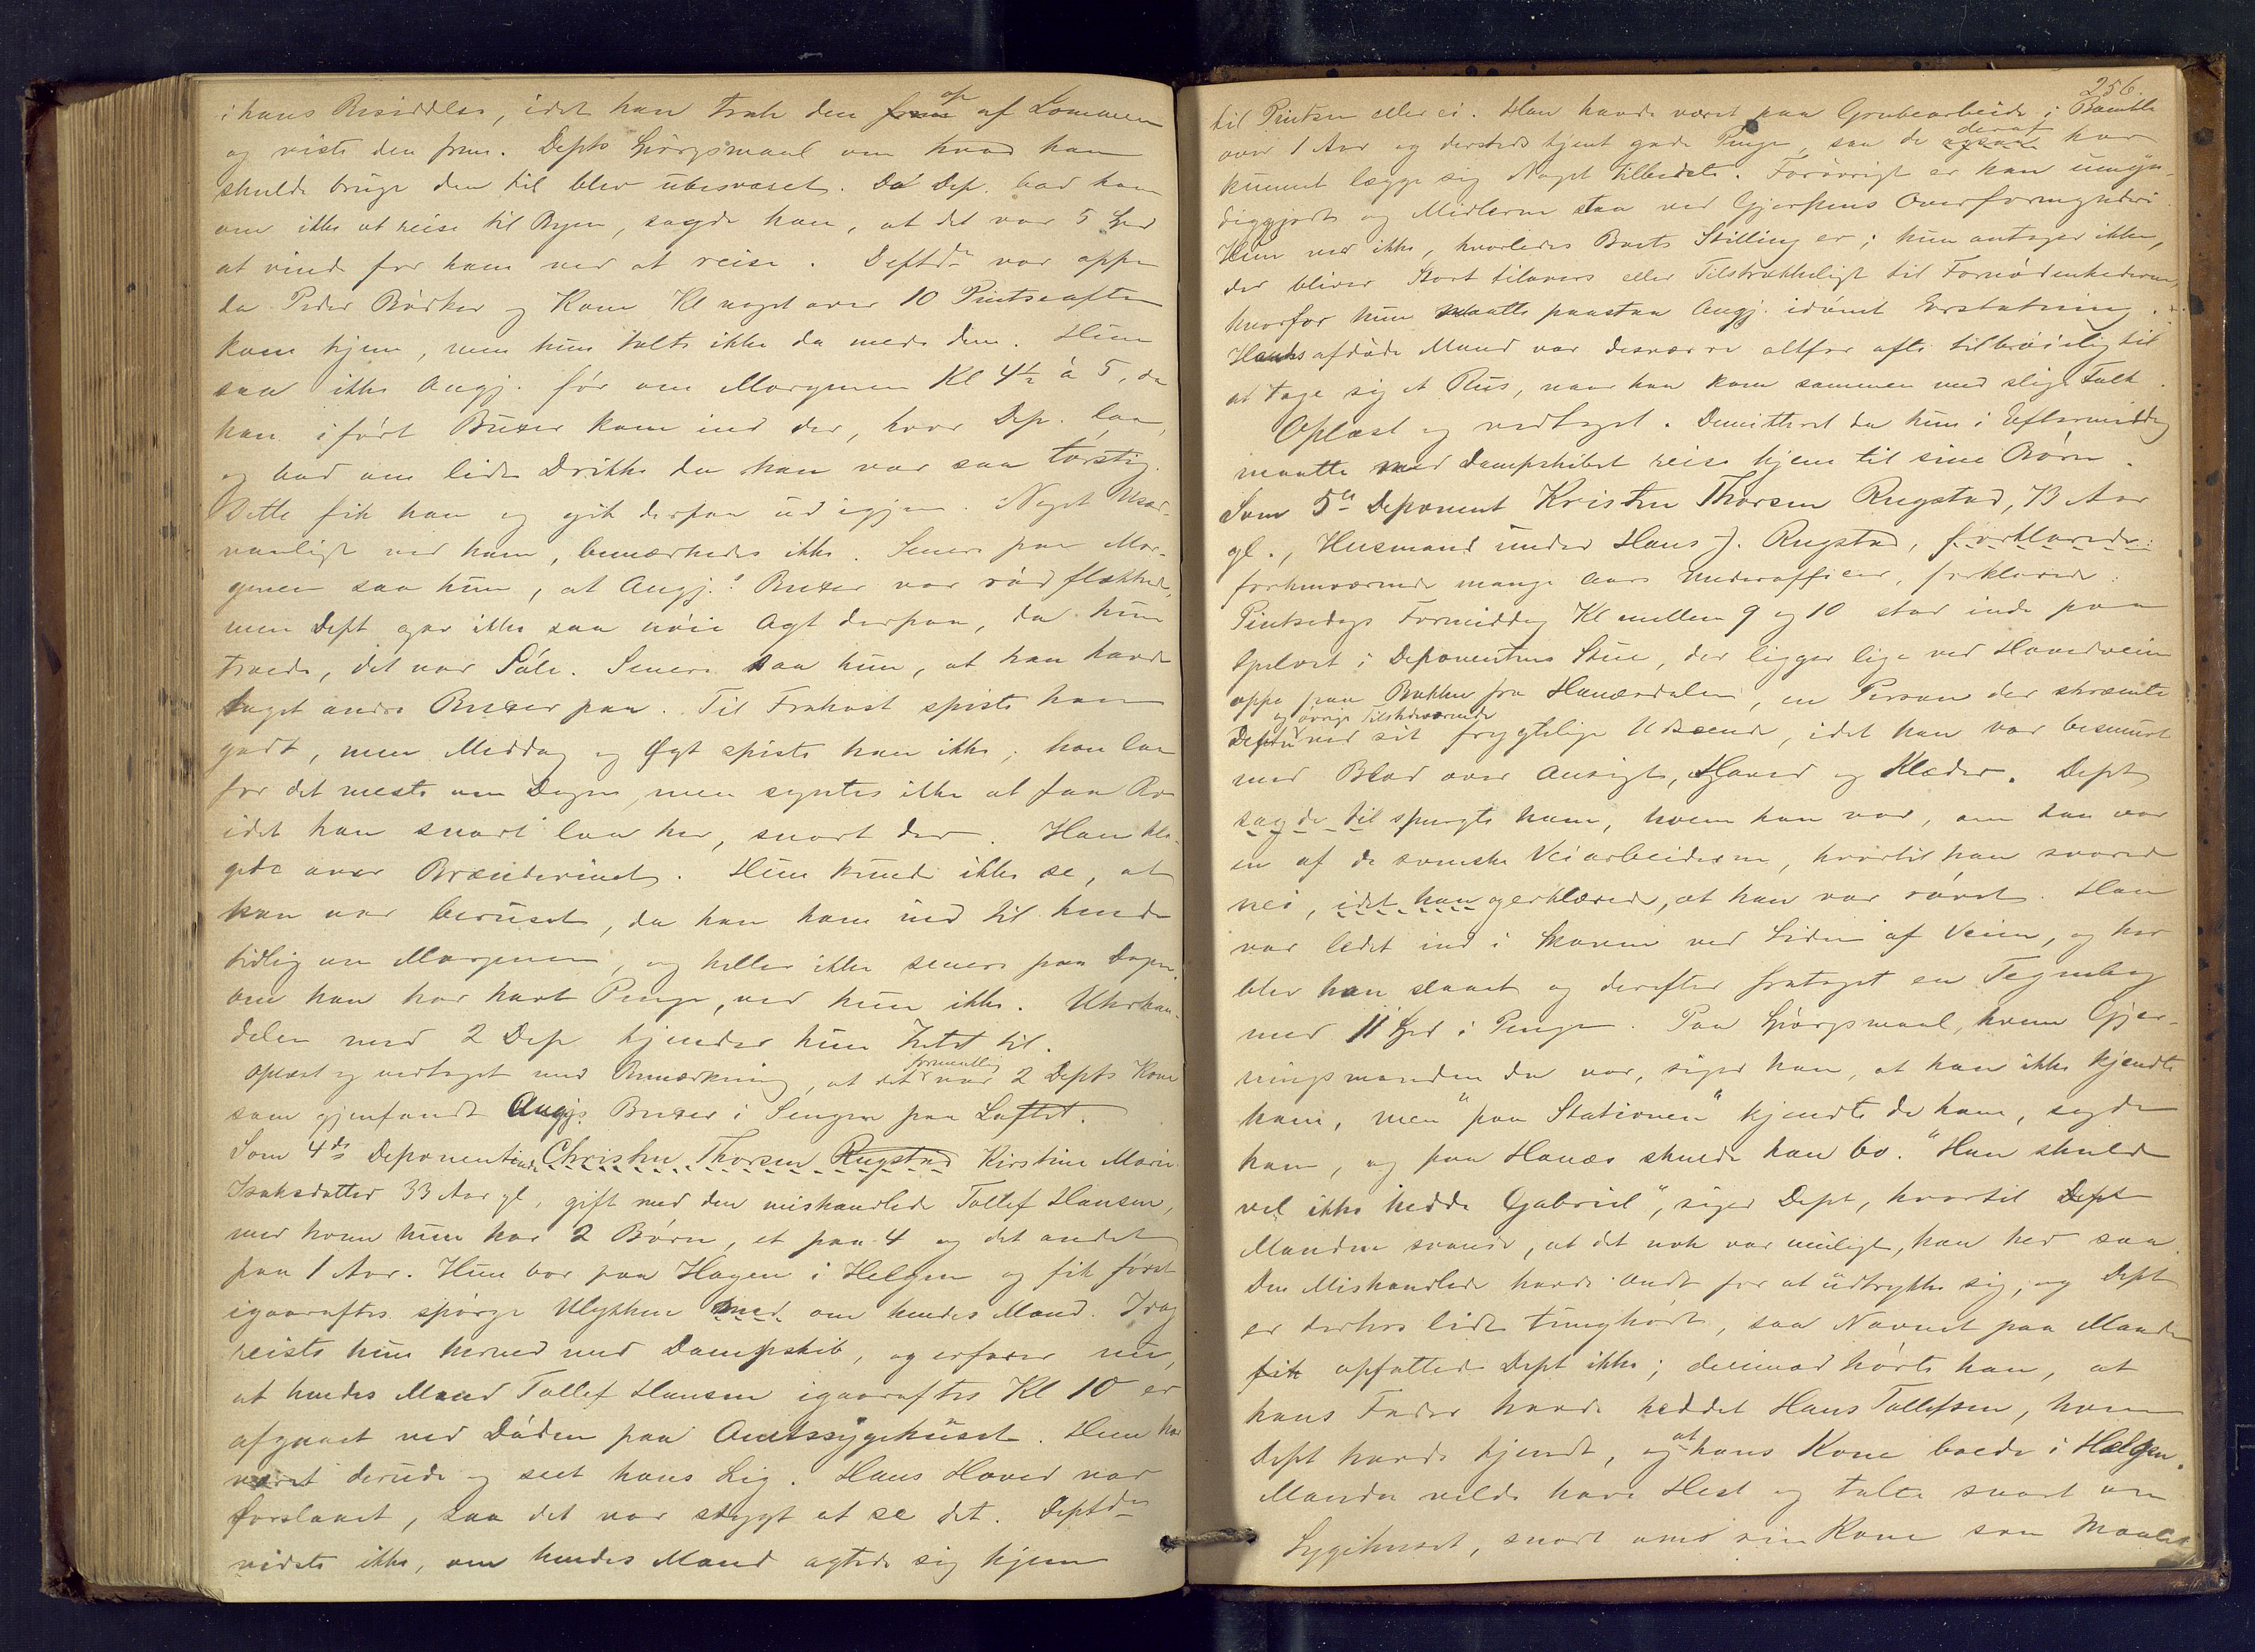 i hans Besiddelse, idet han trak den frem op af Lommen
og viste den frem. Depts Spørgsmaal om hvad han
skulde bruge den til blev ubesvaret. Da Dep. bad ham
om ikke at reise til Byen, sagde han, at det var 5 Spd
at vinde for ham ved at reise. Deptd- var oppe
da Peder Bødker og Kone Kl noget over 10 Pintseaften
kom hjem, men hun talte ikke da med dem. Hun
saa ikke Angj. før om Morgenen Kl 4½ à 5, da
han iført Buxer kom ind der, hvor Dep. laa,
og bad om lidt Drikke da han var saa tørstig.
Dette fik han og gik derpaa ud igjen. Noget Usæd-
vanligt ved ham, bemærkedes ikke. Senere paa Mor-
genen saa hun, at Angj.s Buxer var rød flækkede,
men Dept gav ikke saa nøie Agt derpaa, da hun
troede, det var Søle. Senere saa hun, at han havde
taget andre Buxer paa. Til Frokost spiste han
godt, men Middag og Øgt spiste han ikke; han laa
for det meste om Dagen, men syntes ikke at faa Ro
idet han snart laa her, snart der. Han kla-
gede over Brændeviinet. Hun kunde ikke se, at
han var beruset, da han kom ind til hende
tidlig om Morgenen, og heller ikke senere paa Dagen.
Om han har havt Penge, ved hun ikke. Uhrhan-
delen med 2 Dep kjender hun Intet til.
Oplæst og vedtaget med Bemærkning, at det formentlig var 2 Depts Kone
som gjenfandt Angjs Buxer i Sengen paa Loftet.
Som 4de Deponentinde Christen Thorsen Rugstad Kirstine Marie
Isaksdatter 33 Aar gl, gift med den mishandlede Tollef Hansen,
med hvem hun har 2 Børn, et paa 4 og det andet
paa 1 Aar. Hun bor paa Hagen i Helgen og fik først
igaaraftes spørge Ulykken med om hendes Mand. Idag
reiste hun herned med Dampskib, og erfarer nu,
at hendes Mand Tollef Hansen igaaraftes Kl 10 er
afgaaet ved Døden paa Amtssygehuset. Hun har
været derude og seet hans Lig. Hans Hoved var
forslaaet, saa det var stygt at se det. Deptd-
vidste ikke, om hendes Mand agtede sig hjem
256.
til Pintsen eller ei. Han havde været paa Grubearbeide i Bamble
over 1 Aar og dersteds tjent gode Penge, saa de ogsaa deraf har
kunnet lægge sig Noget tilbedste. Forøvrigt er han umyn-
diggjort og Midlerne staa ved Gjerpens Overformynderi
Hun ved ikke, hvorledes Boets Stilling er; hun antager ikke,
der bliver Stort tilovers eller Tilstrækkeligt til Fornødenhederne,
hvorfor hun maatte paastaa Angj. idømt Erstatning.
Hendes afdøde Mand var desværre altfor ofte tilbøielig til
at tage sig et Rus, naar han kom sammen med slige Folk.
Oplæst og vedtaget. Demitteret da hun i Eftermiddag
maatte med Dampskibet reise hjem til sine Børn.
Som 5te Deponent Kristen Thorsen Rugstad, 73 Aar
gl., Husmand under Hans J. Rugstad, forklarede:
forhenværende mange Aars Underofficer, forklarede:
Pintsedags Formiddag Kl mellem 9 og 10 stod inde paa
Gulvet i Deponentens Stue, der ligger lige ved Hovedveien
oppe paa Bakken fra Hanæsdalen, en Person der skræmte
Dept og øvrige Tilstedeværende ved sit frygtelige Udseende, idet han var besmurt
med Blod over Ansigt, Hoved og Klæder. Dept
sagde til spurgte ham, hvem han var, om han var
en af de svenske Veiarbeiderne, hvortil han svared
nei, idet han gerklærede, at han var røvet. Han
var ledet ind i Skoven ved Siden af Veien, og her
blev han slaaet og derefter frataget en Tegnebog
med 11 Spd i Penge. Paa Spørgsmaal, hvem Gjer-
ningsmanden da var, siger han, at han ikke kjendte
ham, men "paa Stationen" kjendte de ham, sagde
han, og paa Hanæs skulde han bo. "Han skulde
vel ikke hedde Gabriel", siger Dept, hvortil Dept
Manden svarede, at det nok var muligt, han hed saa.
Den Mishandlede havde ondt for at udtrykke sig, og Dept
er derhos lidt tunghørt, saa Navnet paa Manden
fik opfattede Dept ikke; derimod hørte han, at
hans Fader havde heddet Hans Tollefsen, hvem
Dept havde kjendt, og at hans Kone boede i Helgen.
Manden vilde have Hest og talte snart om
Sygehuset, snart om sin Kone som Maalet